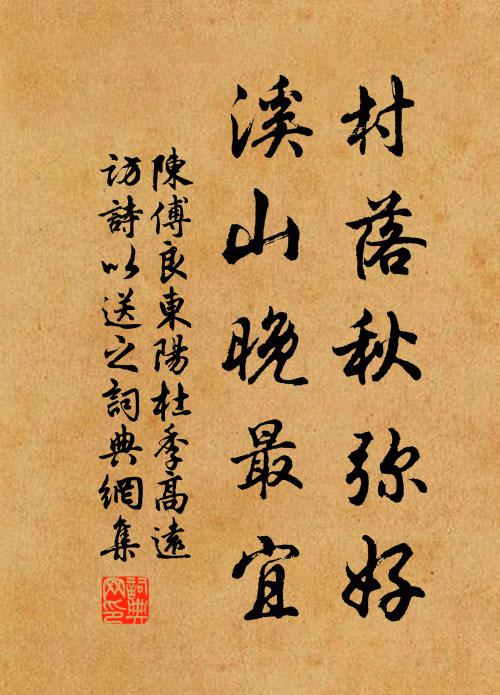 村落秋弥好
溪山晚最宜
陳傅良東陽杜季高遠
訪詩以送之詞典網集
詞典
网印